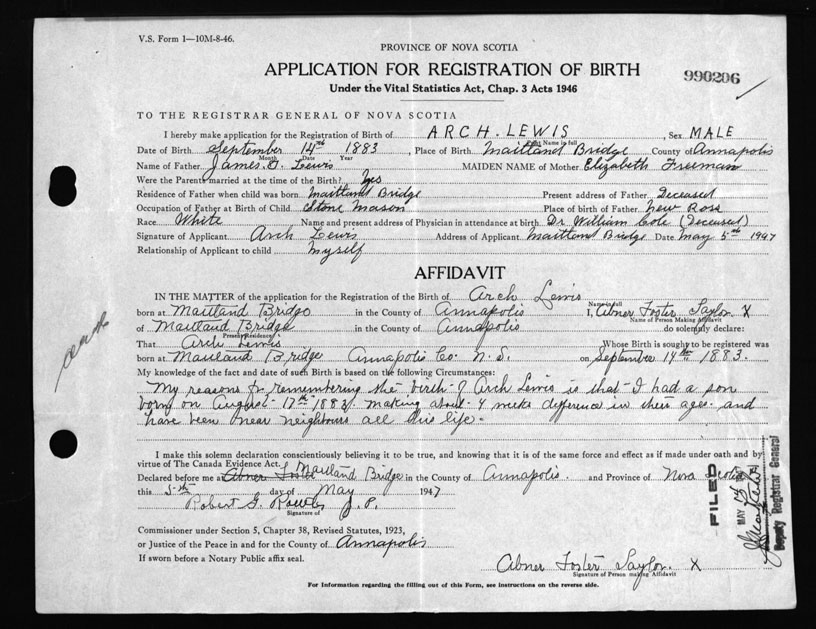 V.S. Form 1—10M-8-46.
PROVINCE OF NOVA SCOTIA
APPLICATION FOR REGISTRATION OF BIRTH
990206
Under the Vital Statistics Act, Chap. 3 Acts 1946
TO THE REGISTRAR GENERAL OF NOVA SCOTIA
I hereby make application for the Registration of Birth of ARCH. LEWIS, Sex MALE
Print Name in full
Date of Birth September 14th 1883, Place of Birth Maitland Bridge County of Annapolis
Month Date Year
Name of Father James Lewis MAIDEN NAME of Mother Elizabeth Freeman
Were the Parents married at the time of the Birth? Yes
Residence of Father when child was born Maitland Bridge Present address of Father Deceased
Occupation of Father at Birth of Child Stone Mason Place of birth of Father New Ross
Race White Name and present address of Physician in attendance at birth Dr. William Cole (Deceased)
Signature of Applicant Arch Lewis Address of Applicant Maitland Bridge Date May 5th 1947
Relationship of Applicant to child Myself
AFFIDAVIT
IN THE MATTER of the application for the Registration of the Birth of Arch Lewis
Name in full
born at Maitland Bridge in the County of Annapolis I, Abner Foster Taylor X
Name of Person Making Affidavit
of Maitland Bridge in the County of Annapolis do solemnly declare:
Present Residence
That Arch Lewis Whose Birth is sought to be registered was
born at Maitland Bridge Annapolis Co. N.S. on September 14th 1883.
My knowledge of the fact and date of such Birth is based on the following Circumstances:
My reasons for remembering the birth of Arch Lewis is that I had a son
born on August 17th 1883. making about 4 weeks difference in their ages. and
have been near neighbours all this life.
I make this solemn declaration conscientiously believing it to be true, and knowing that it is of the same force and effect as if made under oath and by
virtue of The Canada Evidence Act.
Declared before me at Abner Foster Maitland Bridge in the County of Annapolis. and Province of Nova Scotia
this 5th day of May 1947
Robert G. J.P.
Signature of
Commissioner under Section 5, Chapter 38, Revised Statutes, 1923,
or Justice of the Peace in and for the County of Annapolis
If sworn before a Notary Public affix seal.
Abner Foster Taylor. X
Signature of Person making Affidavit
For Information regarding the filling out of this Form, see instructions on the reverse side.
FILED
MAY
Deputy Registrar General